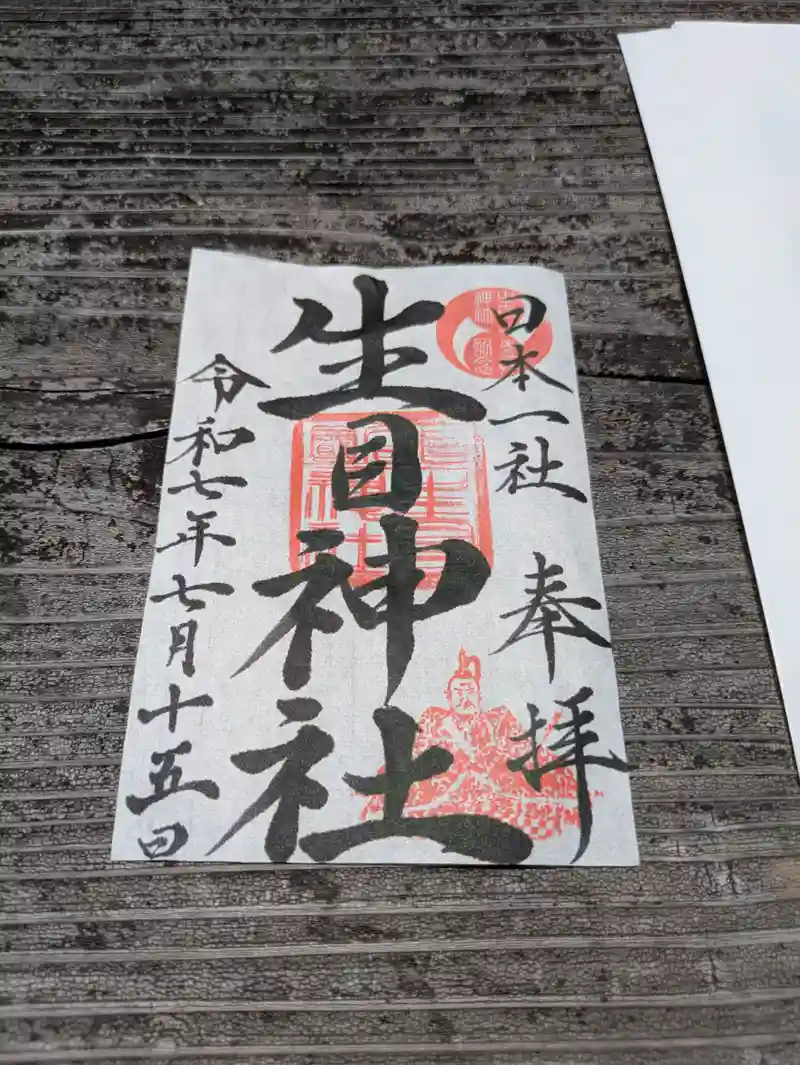 日本一社 奉拝
生目神社
令和七年七月十五日